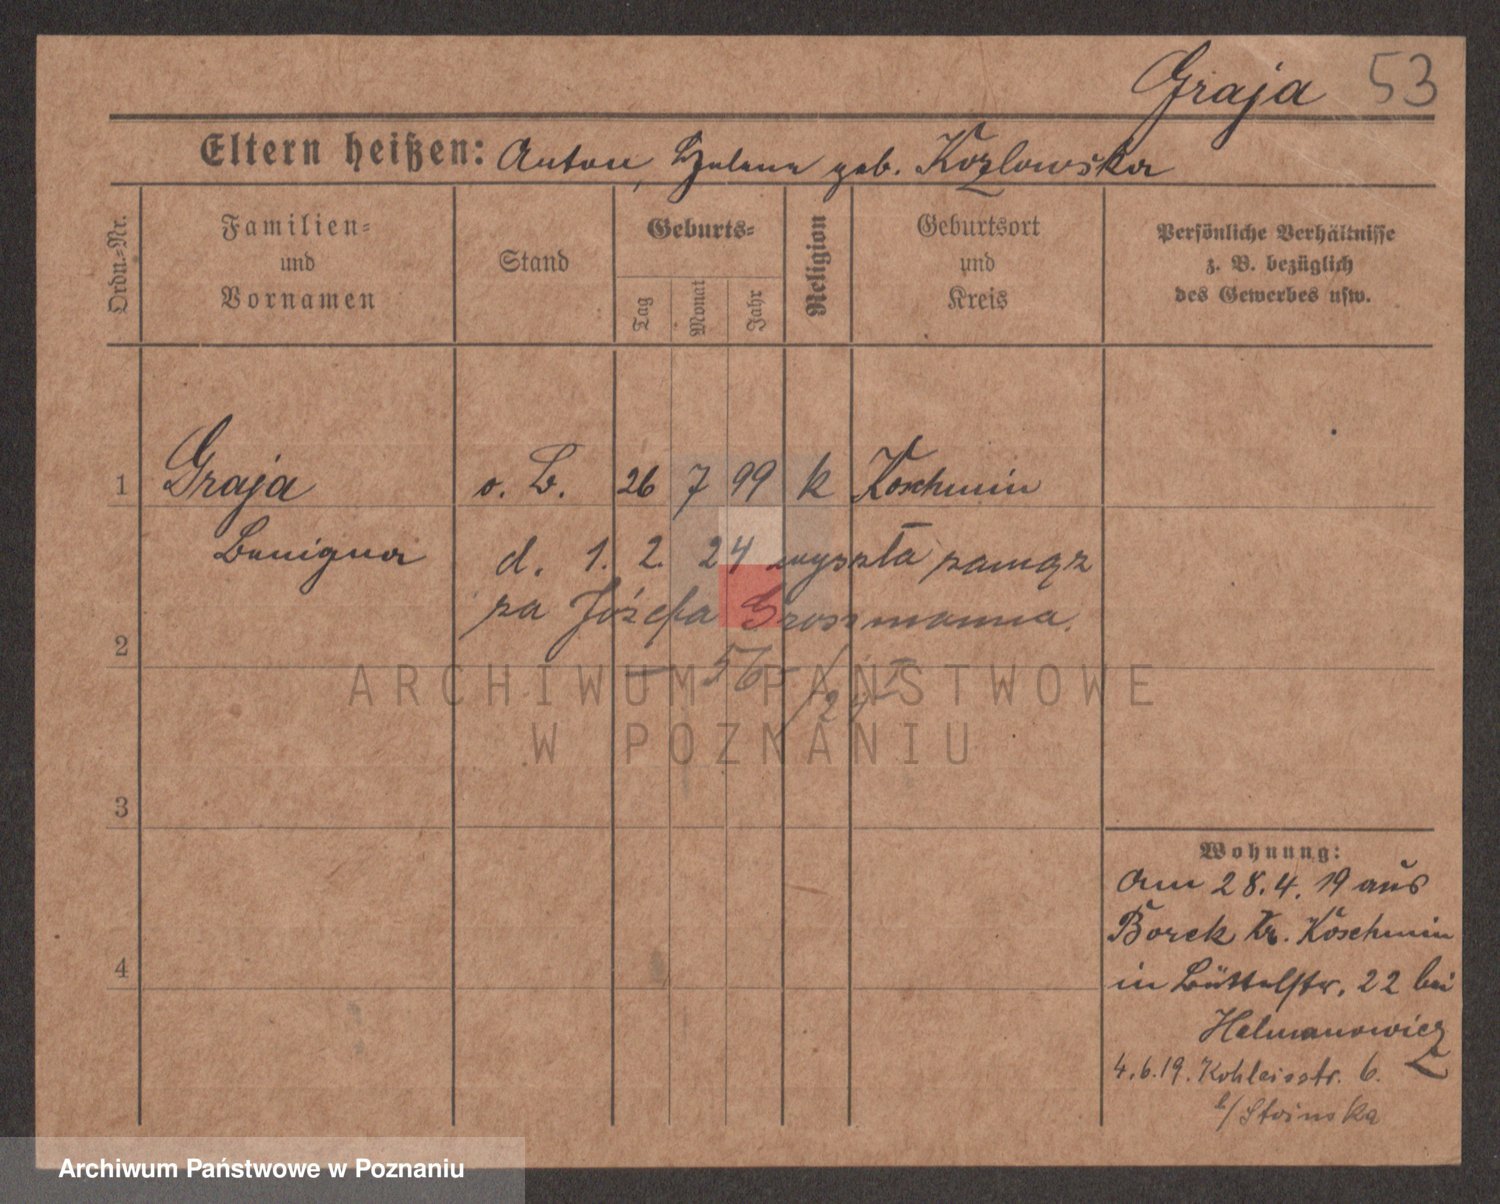 Graja 53
Eltern heißen: Anton, Helena geb. Kozlowska
Ordn.-Nr.
Familien-
und
Vornamen
Stand
Geburts-
Tag
Monat
Jahr
Religion
Geburtsort
und
Kreis
Persönliche Verhältnisse
z. B. bezüglich
des Gewerbes usw.
1 Graja o. B. 26 7 99 k Koschmin
Benigna d. 1. 2. 24 wyszła zamąz
za Józefa Grossmanna.
2
56
ARCHIWUM PAŃSTWOWE
W POZNANIU
3
4
Wohnung:
Am 28.4.19 aus
Borek Kr. Koschmin
in Büttelstr. 22 bei
Helmanowicz
4.6.19. Kohleisstr. 6.
b/ Stoinska
Archiwum Państwowe w Poznaniu